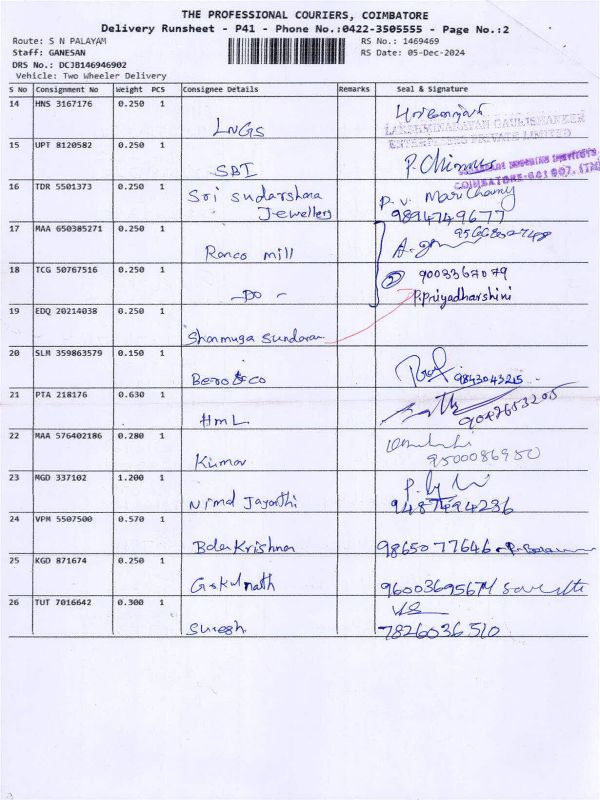 THE PROFESSIONAL COURIERS, COIMBATORE
Delivery Runsheet - P41 - Phone No.:0422-3505555 - Page No.:2
Route: S N PALAYAM
RS No.: 1469469
Staff: GANESAN
RS Date: 05-Dec-2024
DRS No.: DCJB146946902
Vehicle: Two Wheeler Delivery
S No Consignment No Weight PCS Consignee Details Remarks Seal & Signature
14 HNS 3167176 0.250 1
LNGS
LAKSHMINARAYAN GAURISHANKER
ENTERPRISES PRIVATE LIMITED
15 UPT 8120582 0.250 1
SBI
COIMBATORE-641 007.
16 TDR 5501373 0.250 1
Sri Sudarshana P. V. Marichamy
Jewellery 9894749677
17 MAA 650385271 0.250 1
Ranco mill
18 TCG 50767516 0.250 1
2 9003367079
- Do - P.Priyadharshini
19 EDQ 20214038 0.250 1
Shanmuga Sundaram
20 SLM 359863579 0.150 1
Bero & co 9843043215
21 PTA 218176 0.630 1
HML 9042653205
22 MAA 576402186 0.280 1
Kumar 9500086950
23 MGD 337102 1.200 1
Nirmal Jayanthi 9487494236
24 VPM 5507500 0.570 1
Bala Krishnan 9865077646
25 KGD 871674 0.250 1
Gokulnath 9600369567
26 TUT 7016642 0.300 1
Suresh 7826036510